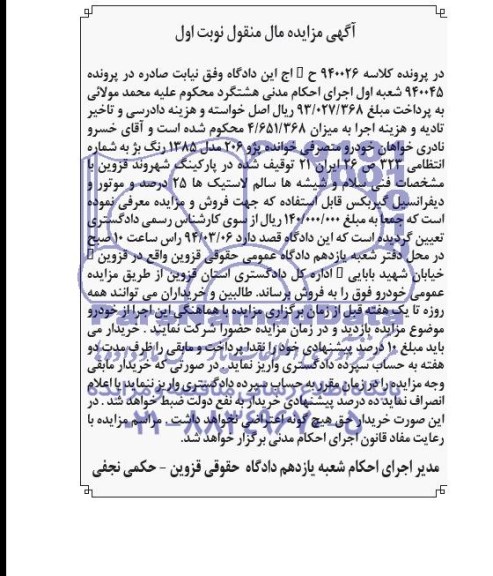 آگهی مزایده مال منقول نوبت اول
در پرونده کلاسه ۹۴۰۰۲۶ ح اج این دادگاه وفق نیابت صادره در پرونده
۹۴۰۰۴۵ شعبه اول اجرای احکام مدنی هشتگرد محکوم علیه محمد مولائی
به پرداخت مبلغ ۹۳/۰۲۷/۳۶۸ ریال اصل خواسته و هزینه دادرسی و تاخیر
تادیه و هزینه اجرا به میزان ۴/۶۵۱/۳۶۸ محکوم شده است و آقای خسرو
نادری خواهان خودرو متصرفی خوانده پژو ۲۰۶ مدل ۱۳۸۵ رنگ بژ به شماره
انتظامی ۳۲۳ ص ۲۶ ایران ۲۱ توقیف شده در پارکینگ شهروند قزوین با
مشخصات فنی سلام و شیشه ها سالم لاستیک ها ۲۵ درصد و موتور و
دیفرانسیل گیربکس قابل استفاده که جهت فروش و مزایده معرفی نموده
است که جمعا به مبلغ ۱۴۰/۰۰۰/۰۰۰ ریال از سوی کارشناس رسمی دادگستری
تعیین گردیده است که این دادگاه قصد دارد ۹۴/۰۳/۰۶ راس ساعت ۱۰ صبح
در محل دفتر شعبه یازدهم دادگاه عمومی حقوقی قزوین واقع در قزوین
خیابان شهید بابایی اداره کل دادگستری استان قزوین از طریق مزایده
عمومی خودرو فوق را به فروش برساند. طالبین و خریداران می توانند همه
روزه تا یک هفته قبل از زمان برگزاری مزایده با هماهنگی این اجرا از خودرو
موضوع مزایده بازدید و در زمان مزایده حضورا شرکت نمایند. خریدار می
باید مبلغ ۱۰ درصد پیشنهادی خود را نقدا پرداخت و مابقی را ظرف مدت دو
هفته به حساب سپرده دادگستری واریز نماید در صورتی که خریدار مابقی
وجه مزایده را در زمان مقرر به حساب سپرده دادگستری واریز ننماید یا اعلام
انصراف نماید ده درصد پیشنهادی خریدار به نفع دولت ضبط خواهد شد. در
این صورت خریدار حق هیچ گونه اعتراضی نخواهد داشت. مراسم مزایده با
رعایت مفاد قانون اجرای احکام مدنی برگزار خواهد شد.
مدیر اجرای احکام شعبه یازدهم دادگاه حقوقی قزوین - حکمی نجفی